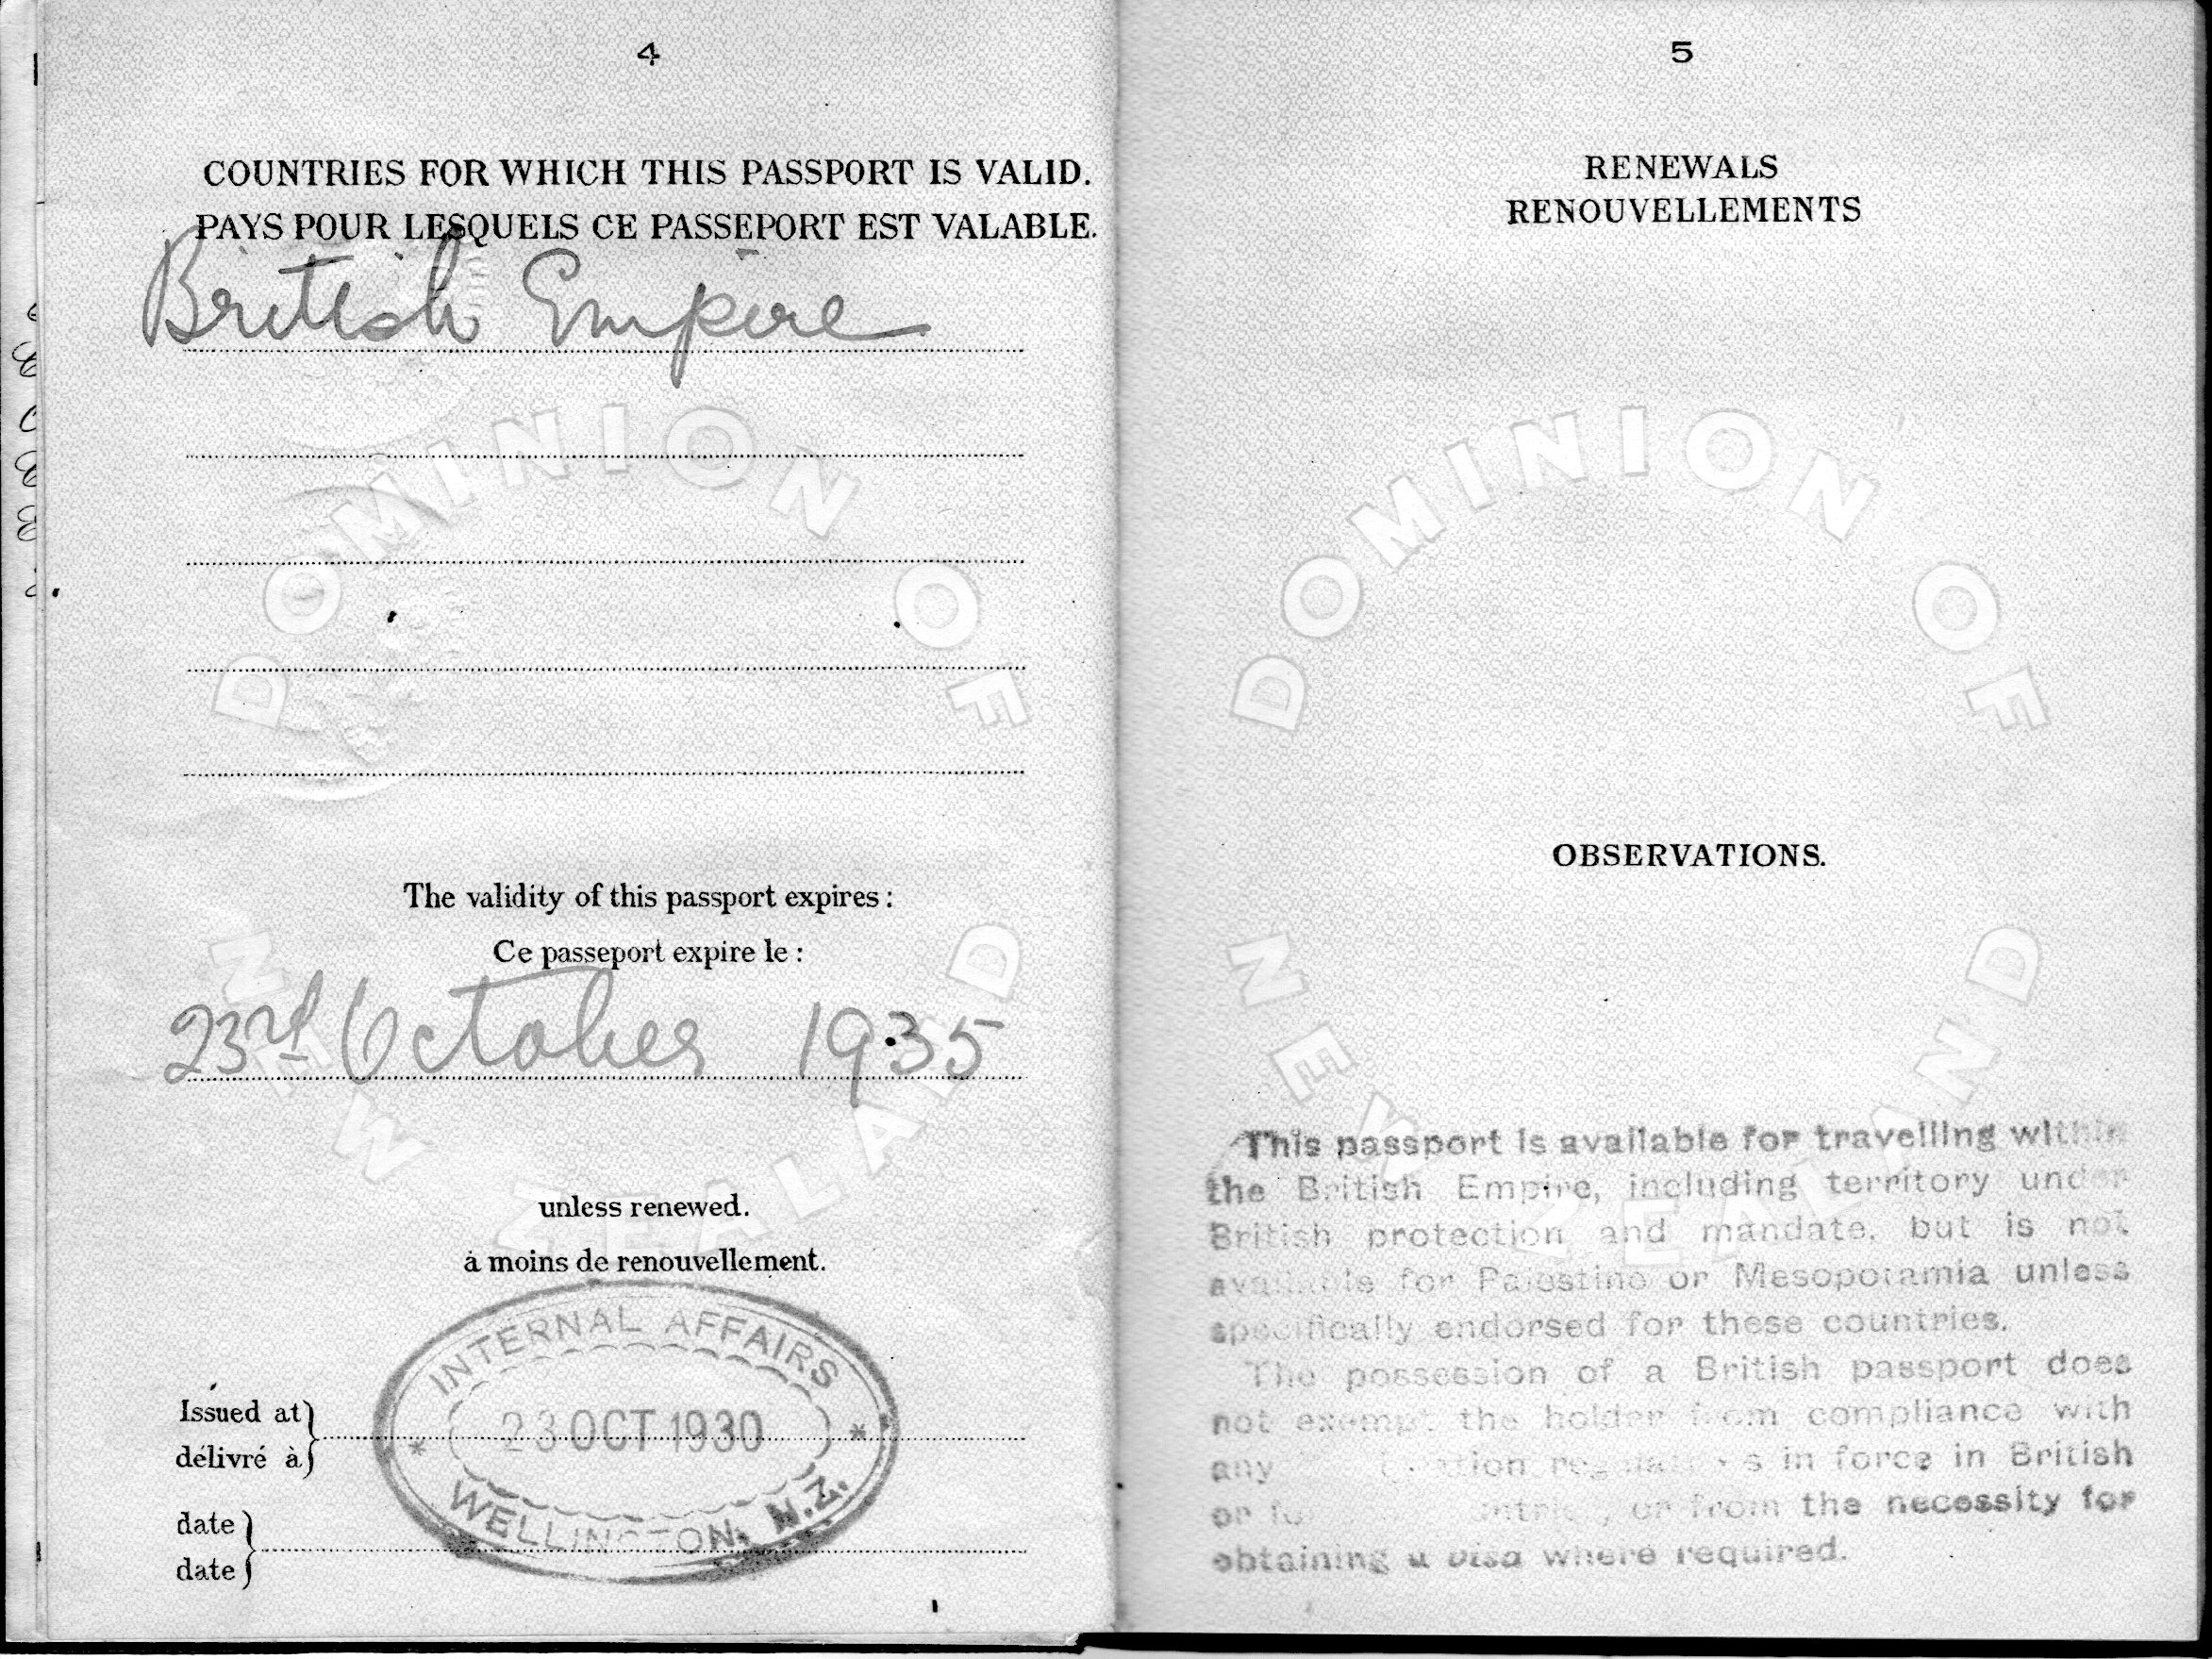 4
COUNTRIES FOR WHICH THIS PASSPORT IS VALID.
PAYS POUR LESQUELS CE PASSEPORT EST VALABLE.
British Empire
DOMINION OF
NEW ZEALAND
The validity of this passport expires :
Ce passeport expire le :
23rd October 1935
unless renewed.
à moins de renouvellement.
INTERNAL AFFAIRS
23 OCT 1930
WELLINGTON, N.Z.
Issued at
délivré à
date
date
5
RENEWALS
RENOUVELLEMENTS
DOMINION OF
NEW ZEALAND
OBSERVATIONS.
This passport is available for travelling within
the British Empire, including territory under
British protection and mandate, but is not
available for Palestine or Mesopotamia unless
specifically endorsed for these countries.
The possession of a British passport does
not exempt the holder from compliance with
any regulations in force in British
or or from the necessity for
obtaining a visa where required.